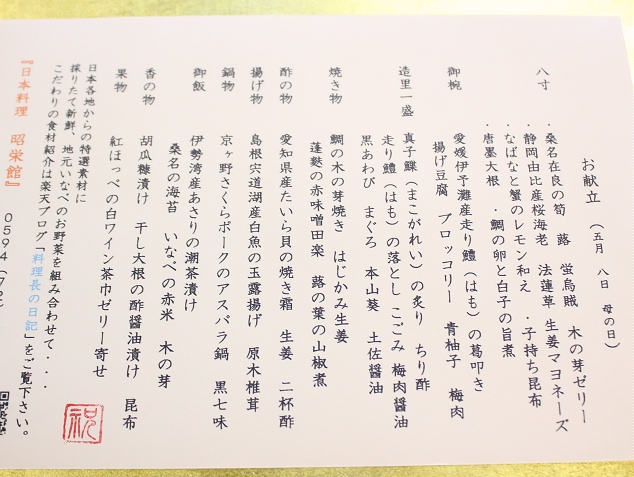 お献立 （五月 八日 母の日）
八寸
・桑名在良の筍 蕗 蛍烏賊 木の芽ゼリー
・静岡由比産桜海老 法蓮草 生姜マヨネーズ
・なばなと蟹のレモン和え ・子持ち昆布
・唐墨大根 ・鯛の卵と白子の旨煮
御椀 愛媛伊予灘産走り鱧（はも）の葛叩き
揚げ豆腐 ブロッコリー 青柚子 梅肉
造里一盛 真子鰈（まこがれい）の炙り ちり酢
走り鱧（はも）の落とし こごみ 梅肉醤油
黒あわび まぐろ 本山葵 土佐醤油
焼き物 鯛の木の芽焼き はじかみ生姜
蓬麩の赤味噌田楽 蕗の葉の山椒煮
酢の物 愛知県産たいら貝の焼き霜 生姜 二杯酢
揚げ物 島根宍道湖産白魚の玉露揚げ 原木椎茸
鍋物 京ヶ野さくらポークのアスパラ鍋 黒七味
御飯 伊勢湾産あさりの潮茶漬け
桑名の海苔 いなべの赤米 木の芽
香の物 胡瓜糠漬け 干し大根の酢醤油漬け 昆布
果物 紅ほっぺの白ワイン茶巾ゼリー寄せ
日本各地からの特選素材に
採りたて新鮮、地元いなべのお野菜を組み合わせて・・・
こだわりの食材紹介は楽天ブログ「料理長の日記」をご覧下さい。
『日本料理 昭栄館』 ０５９４（７２
祝